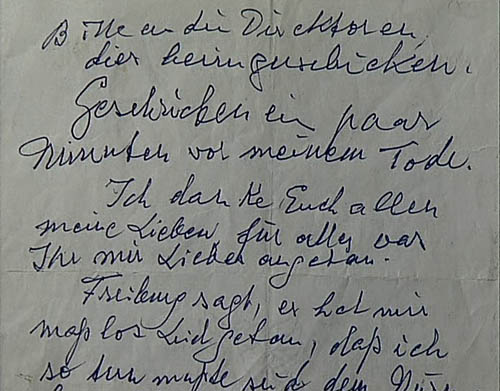 Bitte an die Direktoren,
dies heimzuschicken.
Geschrieben ein paar
Minuten vor meinem Tode.
Ich danke Euch allen
meine Lieben für alles was
Ihr mir Liebes angetan.
Freiburg sagt, es hat mir
maßlos Leid getan, daß ich
so tun mußte seit dem